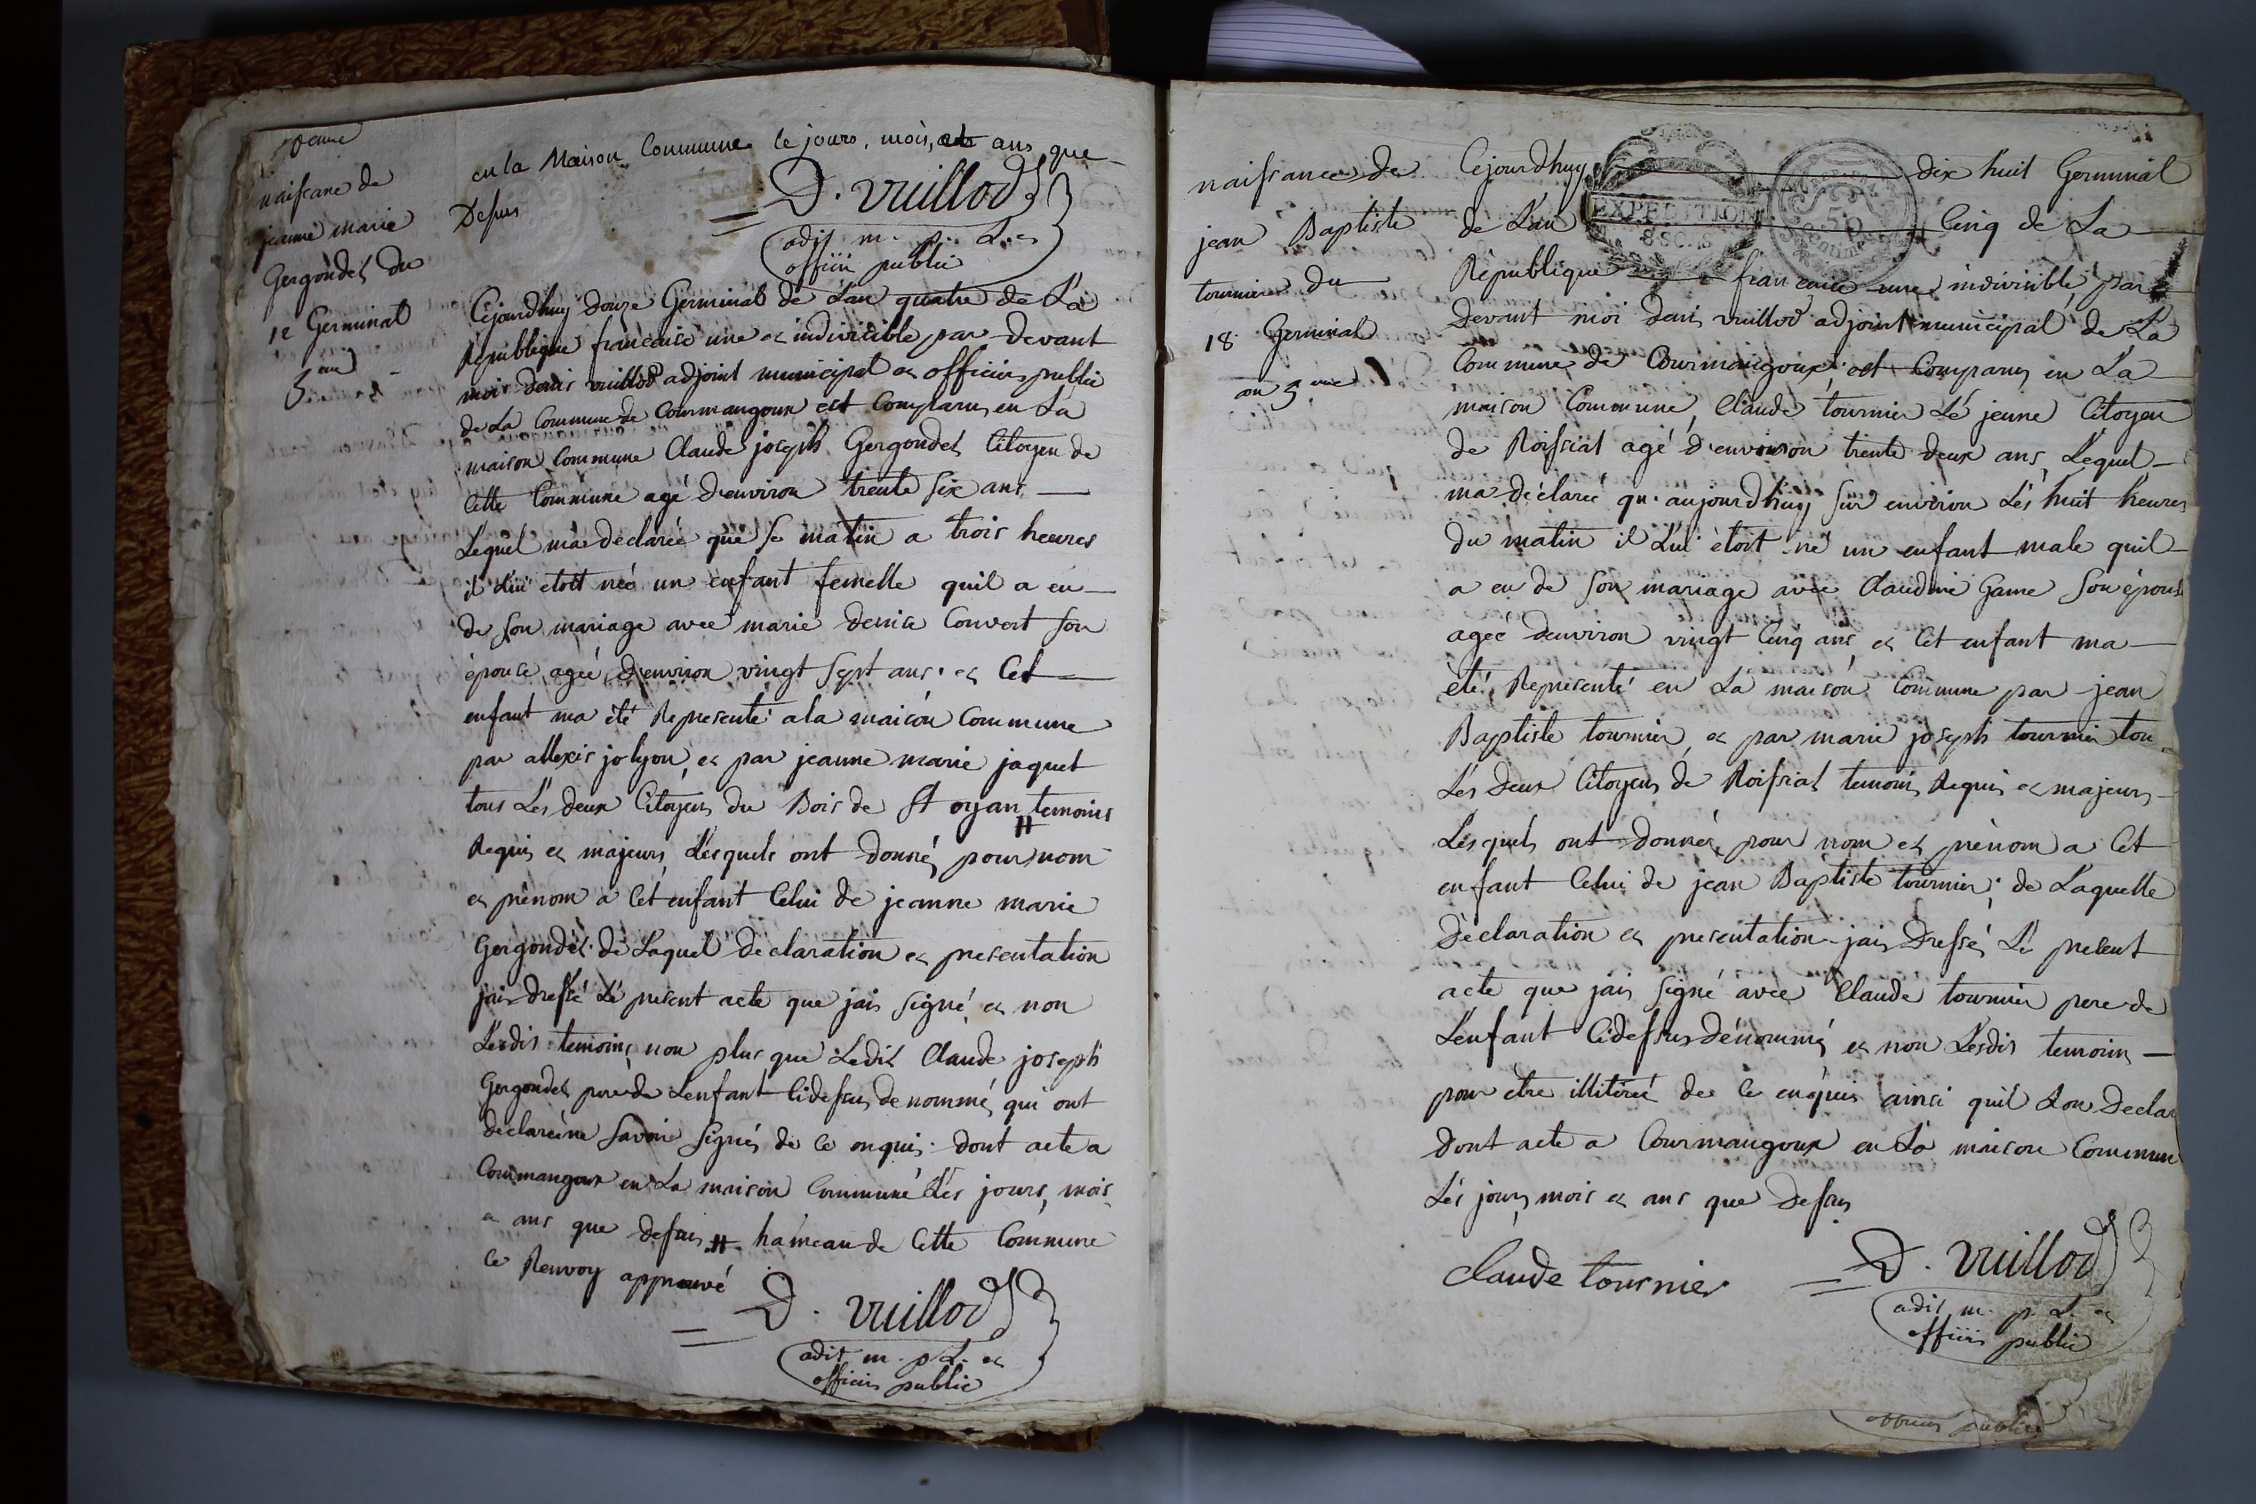 en la Maison Commune le jours, mois, et ans que
Desus
D. vuillod
adjt m. p. L. et
officier public
naissance de
jeanne marie
Gergondet du
12 Germinal
5 eme
Cejourdhuy douze Germinal de L'an quatre de La
Republique francaise une et indivisible par devant
moi denis vuillod adjoint municipal et officier public
de La Commune de Courmangoux est Comparus en La
maison Commune Claude joseph Gergondet Citoyen de
Cette Commune agé d'environ trente six ans
Lequel m'a declareé que se matin a trois heures
il Lui etoit neé un enfant femelle quil a eu
de son mariage avec marie denise Convert son
épouse ageé d'environ vingt sept ans. et Cet
enfant ma été Representé a la maison Commune
par allexis jolyon et par jeanne marie jaquet
tous Lés deux Citoyens du Bois de St oyan H temoins
Requis et majeurs, Lésquels ont donnés pour nom
et prénom a Cet enfant Celui de jeanne marie
Gergondet de Laquel declaration et presentation
jais dressé Lé present acte que jais signé et non
Lésdis temoins, non plus que Ledit Claude joseph
Gergondet pere de Lenfant Cidessus dénommés qui ont
declareé ne savoir signés de ce enquis. dont acte a
Courmangoux en La maison Communé Lés jours, mois
et ans que dessus H haméau de Cette Commune
ce Renvoy approuvé
D. vuillod
adjt m. p. L. et
officier public
naissance de
jean Baptiste
tournier du
18 Germinal
an 5 eme
EXPEDITION
50
Centime
Cejourdhuy dix huit Germinal
de L'an Cinq de La
République francaise une indivisible par
Devant moi denis vuillod adjoint municipal de La
Commune de Courmangoux, est Comparus en La
maison Commune, Claude tournier Lé jeune Citoyen
de Roissiat agé d'environ trente deux ans, Lequel
ma déclareé qu'aujourdhuy sur environ Lés huit heures
du matin il Lui étoit né un enfant male quil
a eu de son mariage avec Claudine Game son épouse
ageé denviron vingt Cinq ans, et Cet enfant ma
été Representé en La maison Commune par jean
Baptiste tournier, et par marie joseph tournier tou
Lés deux Citoyens de Roissiat temoins Requis et majeurs
Lésquels ont donnés pour nom et prénom a Cet
enfant Celui de jean Baptiste tournier; de Laquelle
déclaration et presentation jais dressé Lé present
acte que jais signé avec Claude tournier pere de
Lenfant Cidessus dénommé et non Lésdis temoins
pour etre illitéreé de ce enquis ainsi quil Lon declar
dont acte a Courmangoux en La maison Commune
Lés jours mois et ans que dessus
Claude tournier
D. vuillod
adjt m. p. L. et
officier public
officier public